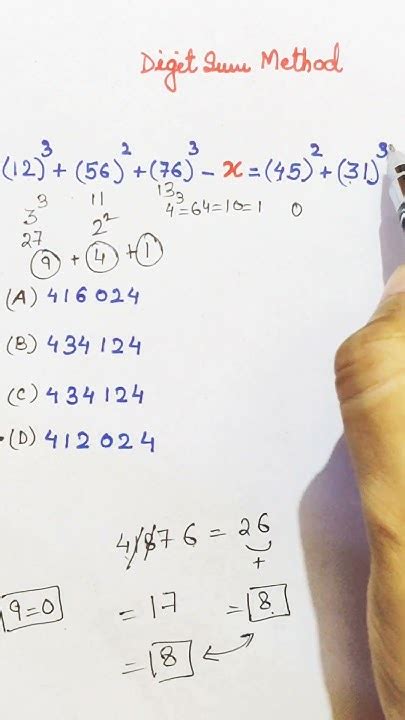 Diget Sum Method
(12)³ + (56)² + (76)³ - x = (45)² + (31)³
3³ 11 13
27 2² 4³=64=10=1 0
9 + 4 + 1
(A) 416024
(B) 434124
(C) 434124
(D) 412024
41876 = 26
+
9=0 = 17 = 8
= 8